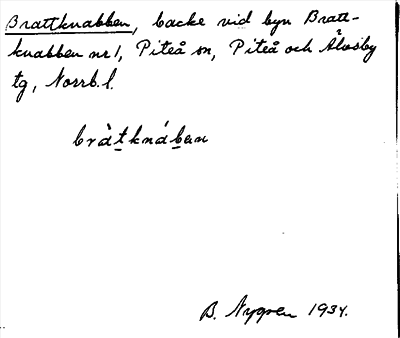 Brattknabben, backe vid byn Bratt-
knabben nr 1, Piteå sn, Piteå och Älvsby
tg, Norrb. l.
bràt̲knáb̲an
B. Nygren 1934.